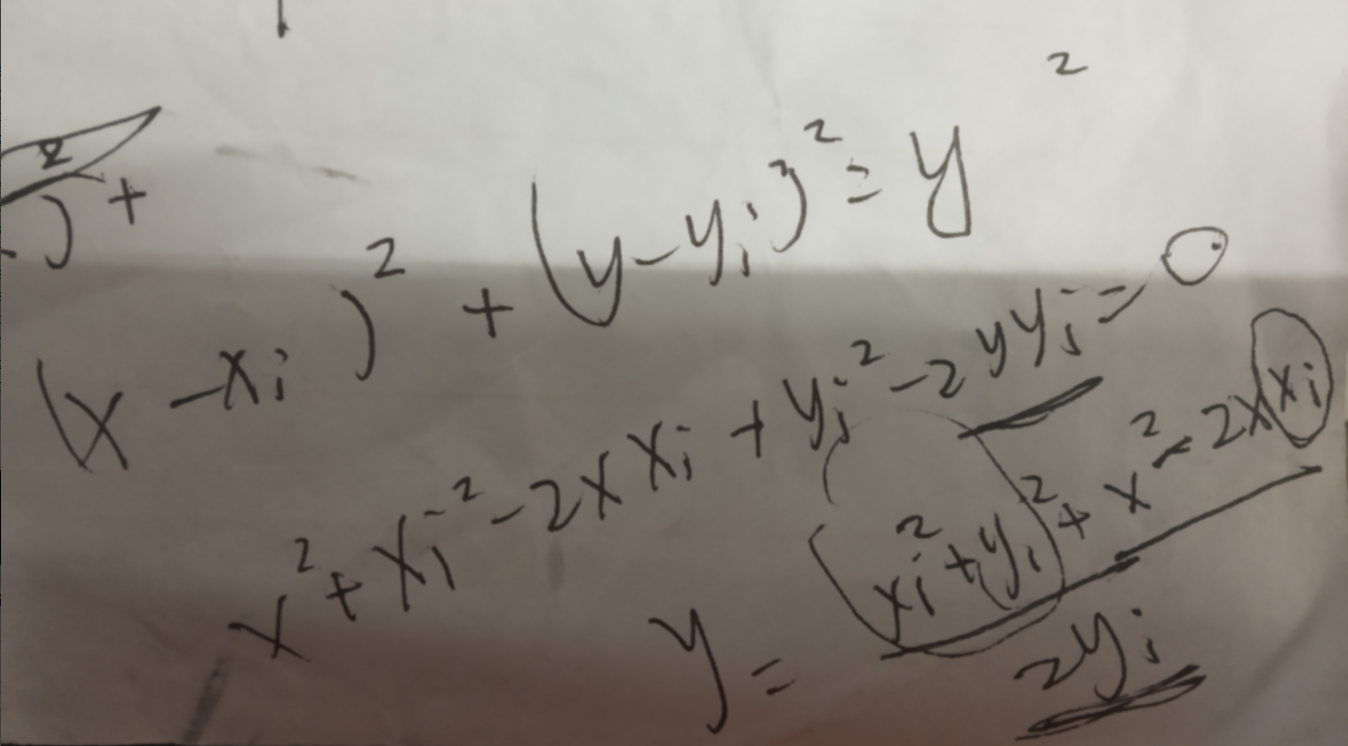 )² +
(x - xi)² + (y - yi)² = y²
x² + xi² - 2x xi + yi² - 2y yi = 0
y = (xi² + yi² + x² - 2x xi) / 2yi